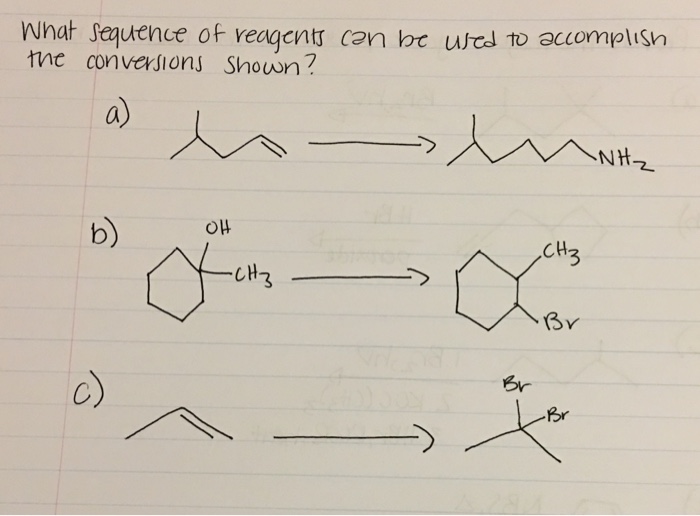 What sequence of reagents can be used to accomplish
the conversions shown?
a)
NH2
b)
OH
CH3
CH3
Br
c)
Br
Br